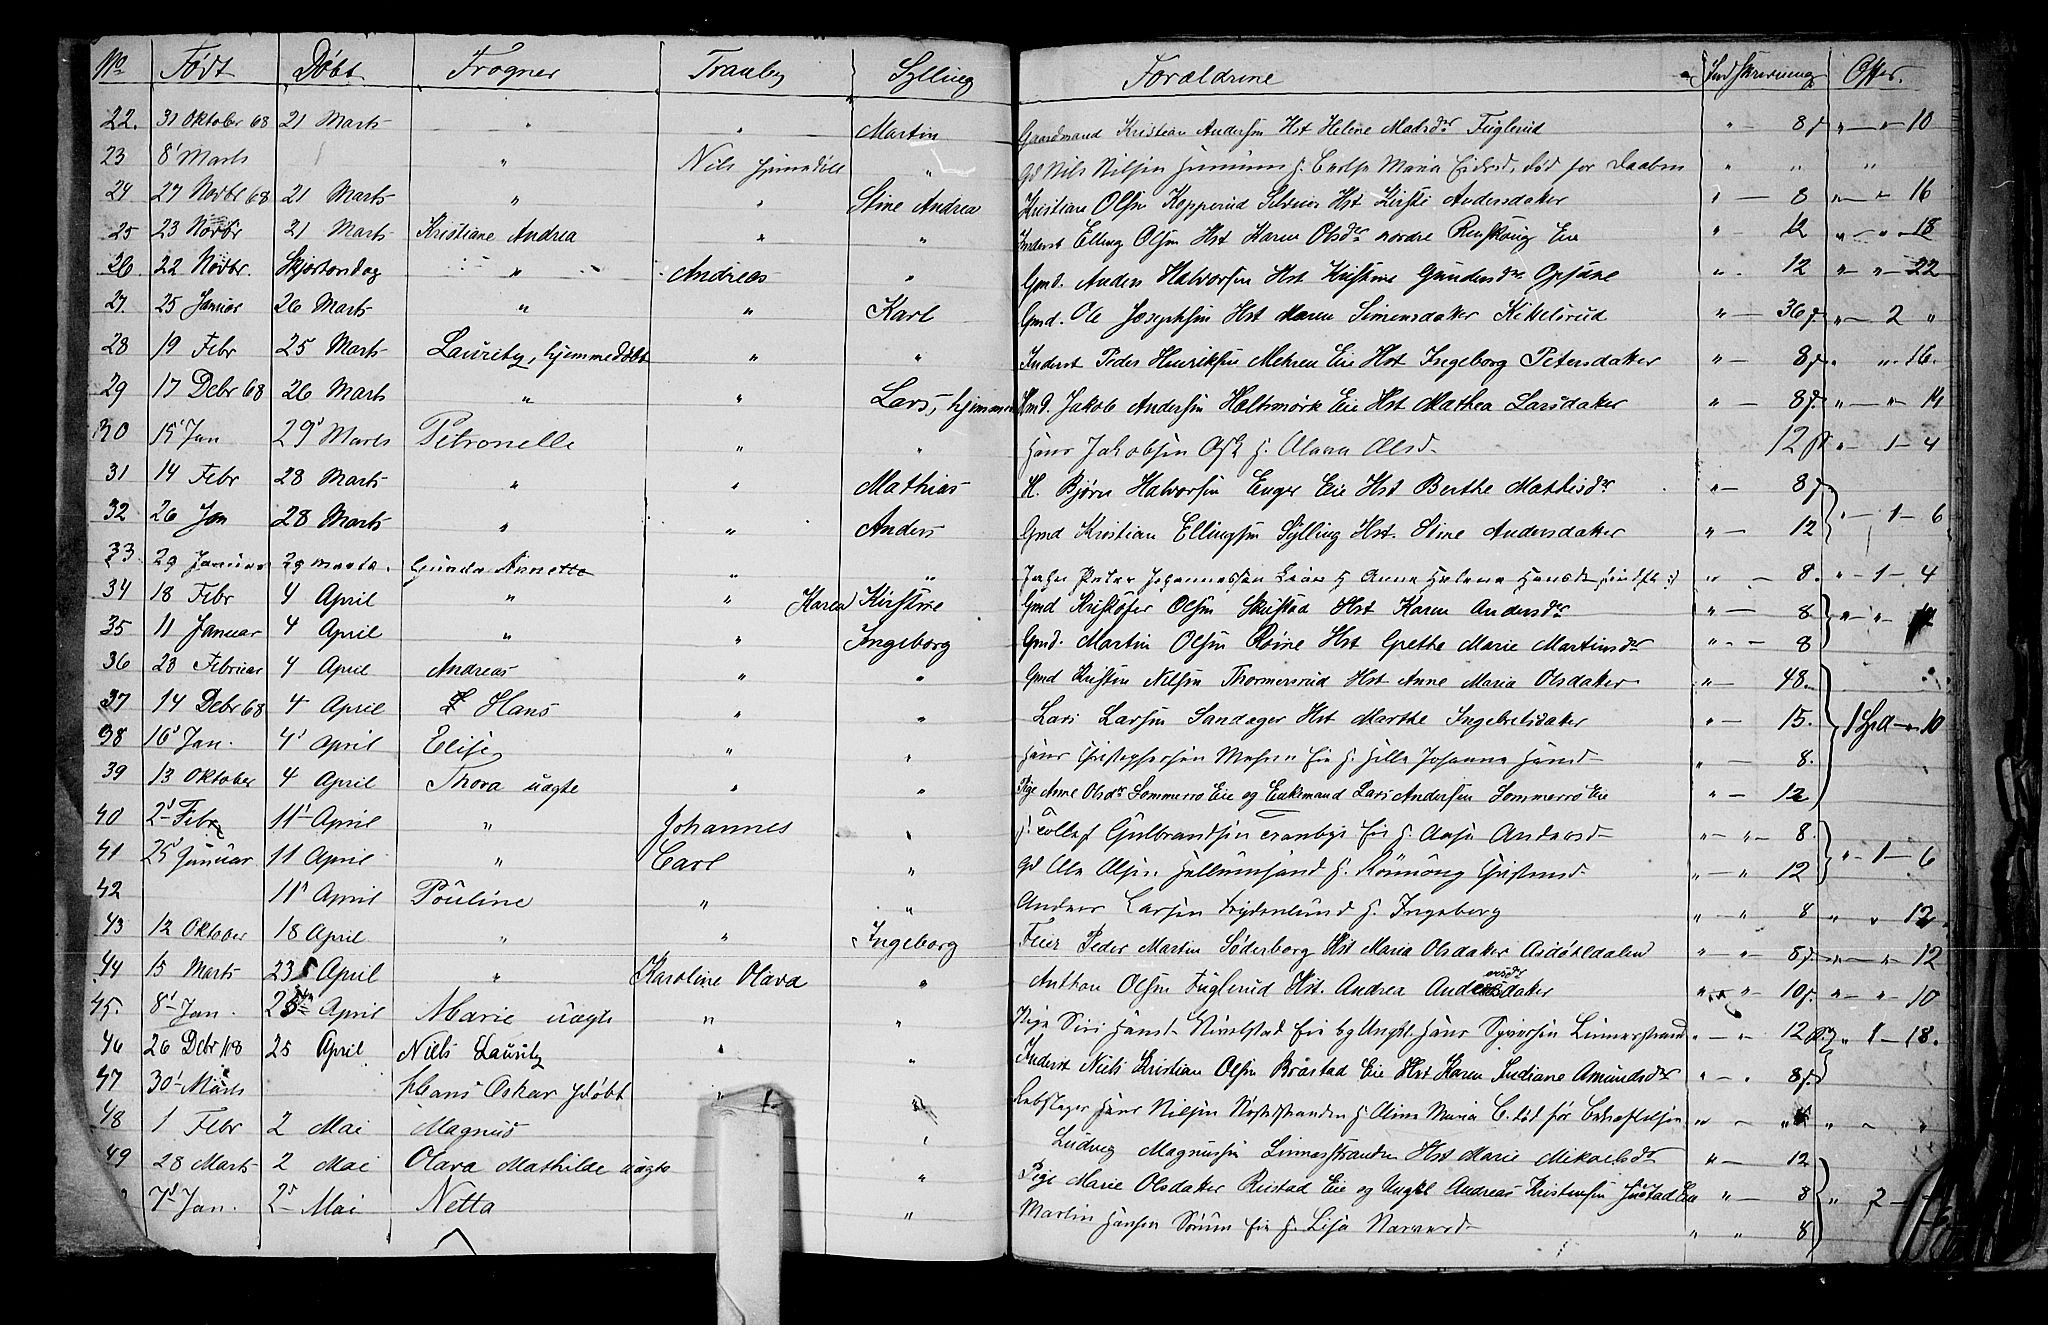 No Født Døbt Frogner Tranby Sylling Foraldrene Indskrivning Offer.
22. 31 Oktober 68 21 Marts " " Martin Gaardmand Kristian Andersen Hst Helene Madsdr Fuglerud " 8 " — " 10
23 8 Marts " Nils hjemmedöbt " Gd Nils Nilsen Maria død før Daaben " " "
24 27 Novbr 68 21 Marts " " Stine Andrea Kristian Olsen Kopperud Hst Kirsti Andersdatter " — 8 " — " 16
25 23 Novbr 21 Marts Kristiane Andrea " " Inderst Elling Olsen Hst Karen Olsdr nordre Renskoug Eie " — 12 " — " 18
26 22 Novbr. Skjærtorsdag " Andreas " Gmd. Anders Halvorsen Hst Kristine Gundersdr Opsane " 12 " — " 22
27. 25 Januar 26 Marts " " Karl Gmd. Ole Josephsen Hst Maren Simensdatter Kikkelsrud " — 36 " — 2 "
28 19 Febr 25 Marts Lauritz, hjemmedöbt " " Inderst Peder Henriksen Mehren Eie Hst Ingeborg Petersdatter " — 8 " " 16.
29 17 Debr 68 26 Marts " " Lars, hjemme Hmd. Jakob Andersen Holtsmörk Eie Hst Mathea Larsdatter " — 8 " — " 14
30 15 Jan 29 Marts Petronelle " " Hans Jakobsen Ask H. Olava Olsd. 12 " — 1 — 4
31 14 Febr 28 Marts " " Mathias H. Björn Halvorsen Enger Eie Hst Berthe Mathisdr " — 8
32 26 Jan 28 Marts " " Anders Gmd Kristian Ellingsen Sylling Hst. Stine Andersdatter " — 12 " — 1 — 6
33. 29 Januar 29 marts. Gunda Annette " " Peter Johannessen Lier H Anna Helena Hansd " — 8. " — 1 — 4
34 18 Febr 4 April " " Karen Kirstine Gmd Kristofer Olsen Skustad Hst Karen Andersdr " — 8
35 11 Januar 4 April " " Ingeborg Gmd. Martin Olsen Röine Hst Grethe Marie Martinsdr " — 8 " — "
36 28 Februar 4 April Andreas " " Gmd Kristen Nilsen Thormersrud Hst Anne Maria Olsdatter " — 48
37 14 Debr 68 4 April Hans " " Lars Larsen Sandager Hst Marthe Ingebretsdatter " — 15. 1 Spd — " 10
38 16 Jan. 4 April Elise " " Hans Christophersen Eie H. Johanne Hansd " — 8.
39 13 Oktober 4 April Thora uägte " " Pige Anne Olsdr Sommerro Eie og Enkemand Lars Andersen Sommerro Eie " — 12
40 2 Febr 11 April " Johannes " H. Tollef Gulbrandsen Tranby Eie H. Andersd " — " 8.
41 25 Januar 11 April " Carl " Gd Ole Olsen H. " — " 12 " — 1 — 6
42 11 April Pouline " " Anders Larsen H. Ingeborg " — " 8 " " 12
43 12 Oktober 18 April. " " Ingeborg Feier Peder Martin Söderborg Hst Maria Olsdatter Asdöldalen " — " 8 — " — 12
44 15 Marts 23 April " Karoline Olava " Anthon Olsen Fuglerud Hst. Andrea Andersdatter " " 10 " — " 10
45. 8 Jan. 25 April Marie uägte " " Pige Siri Hansd Eie og Ungkl. Hans Syversen Linnesstrand " — " 12 " 1 — 18.
46 26 Debr 68 25 April Niels Lauritz " " Inderst Niels Kristian Olsen Bråstad Eie Hst Karen Indiane Amundsdr " — " 8
47 30 Marts Hans Oskar hjdöbt " " Rebslager Hans Nilsen Nøstedstranden H. Oline Maria C. död før bekræftelsen " — " " "
48 1 Febr 2 Mai Magnus " Ludvig Magnussen Linnesstranden Hst Marie Mikaelsdr " — 12
49 28 Marts 2 Mai Olava Mathilde uägte " Pige Marie Olsdatter Rustad Eie og Ungkl Andreas Kristensen Eie " — 8 " 2 —
7 Jan. 2 Mai Netta " Martin Hansen Sörum Eie H. Lisa " " 8